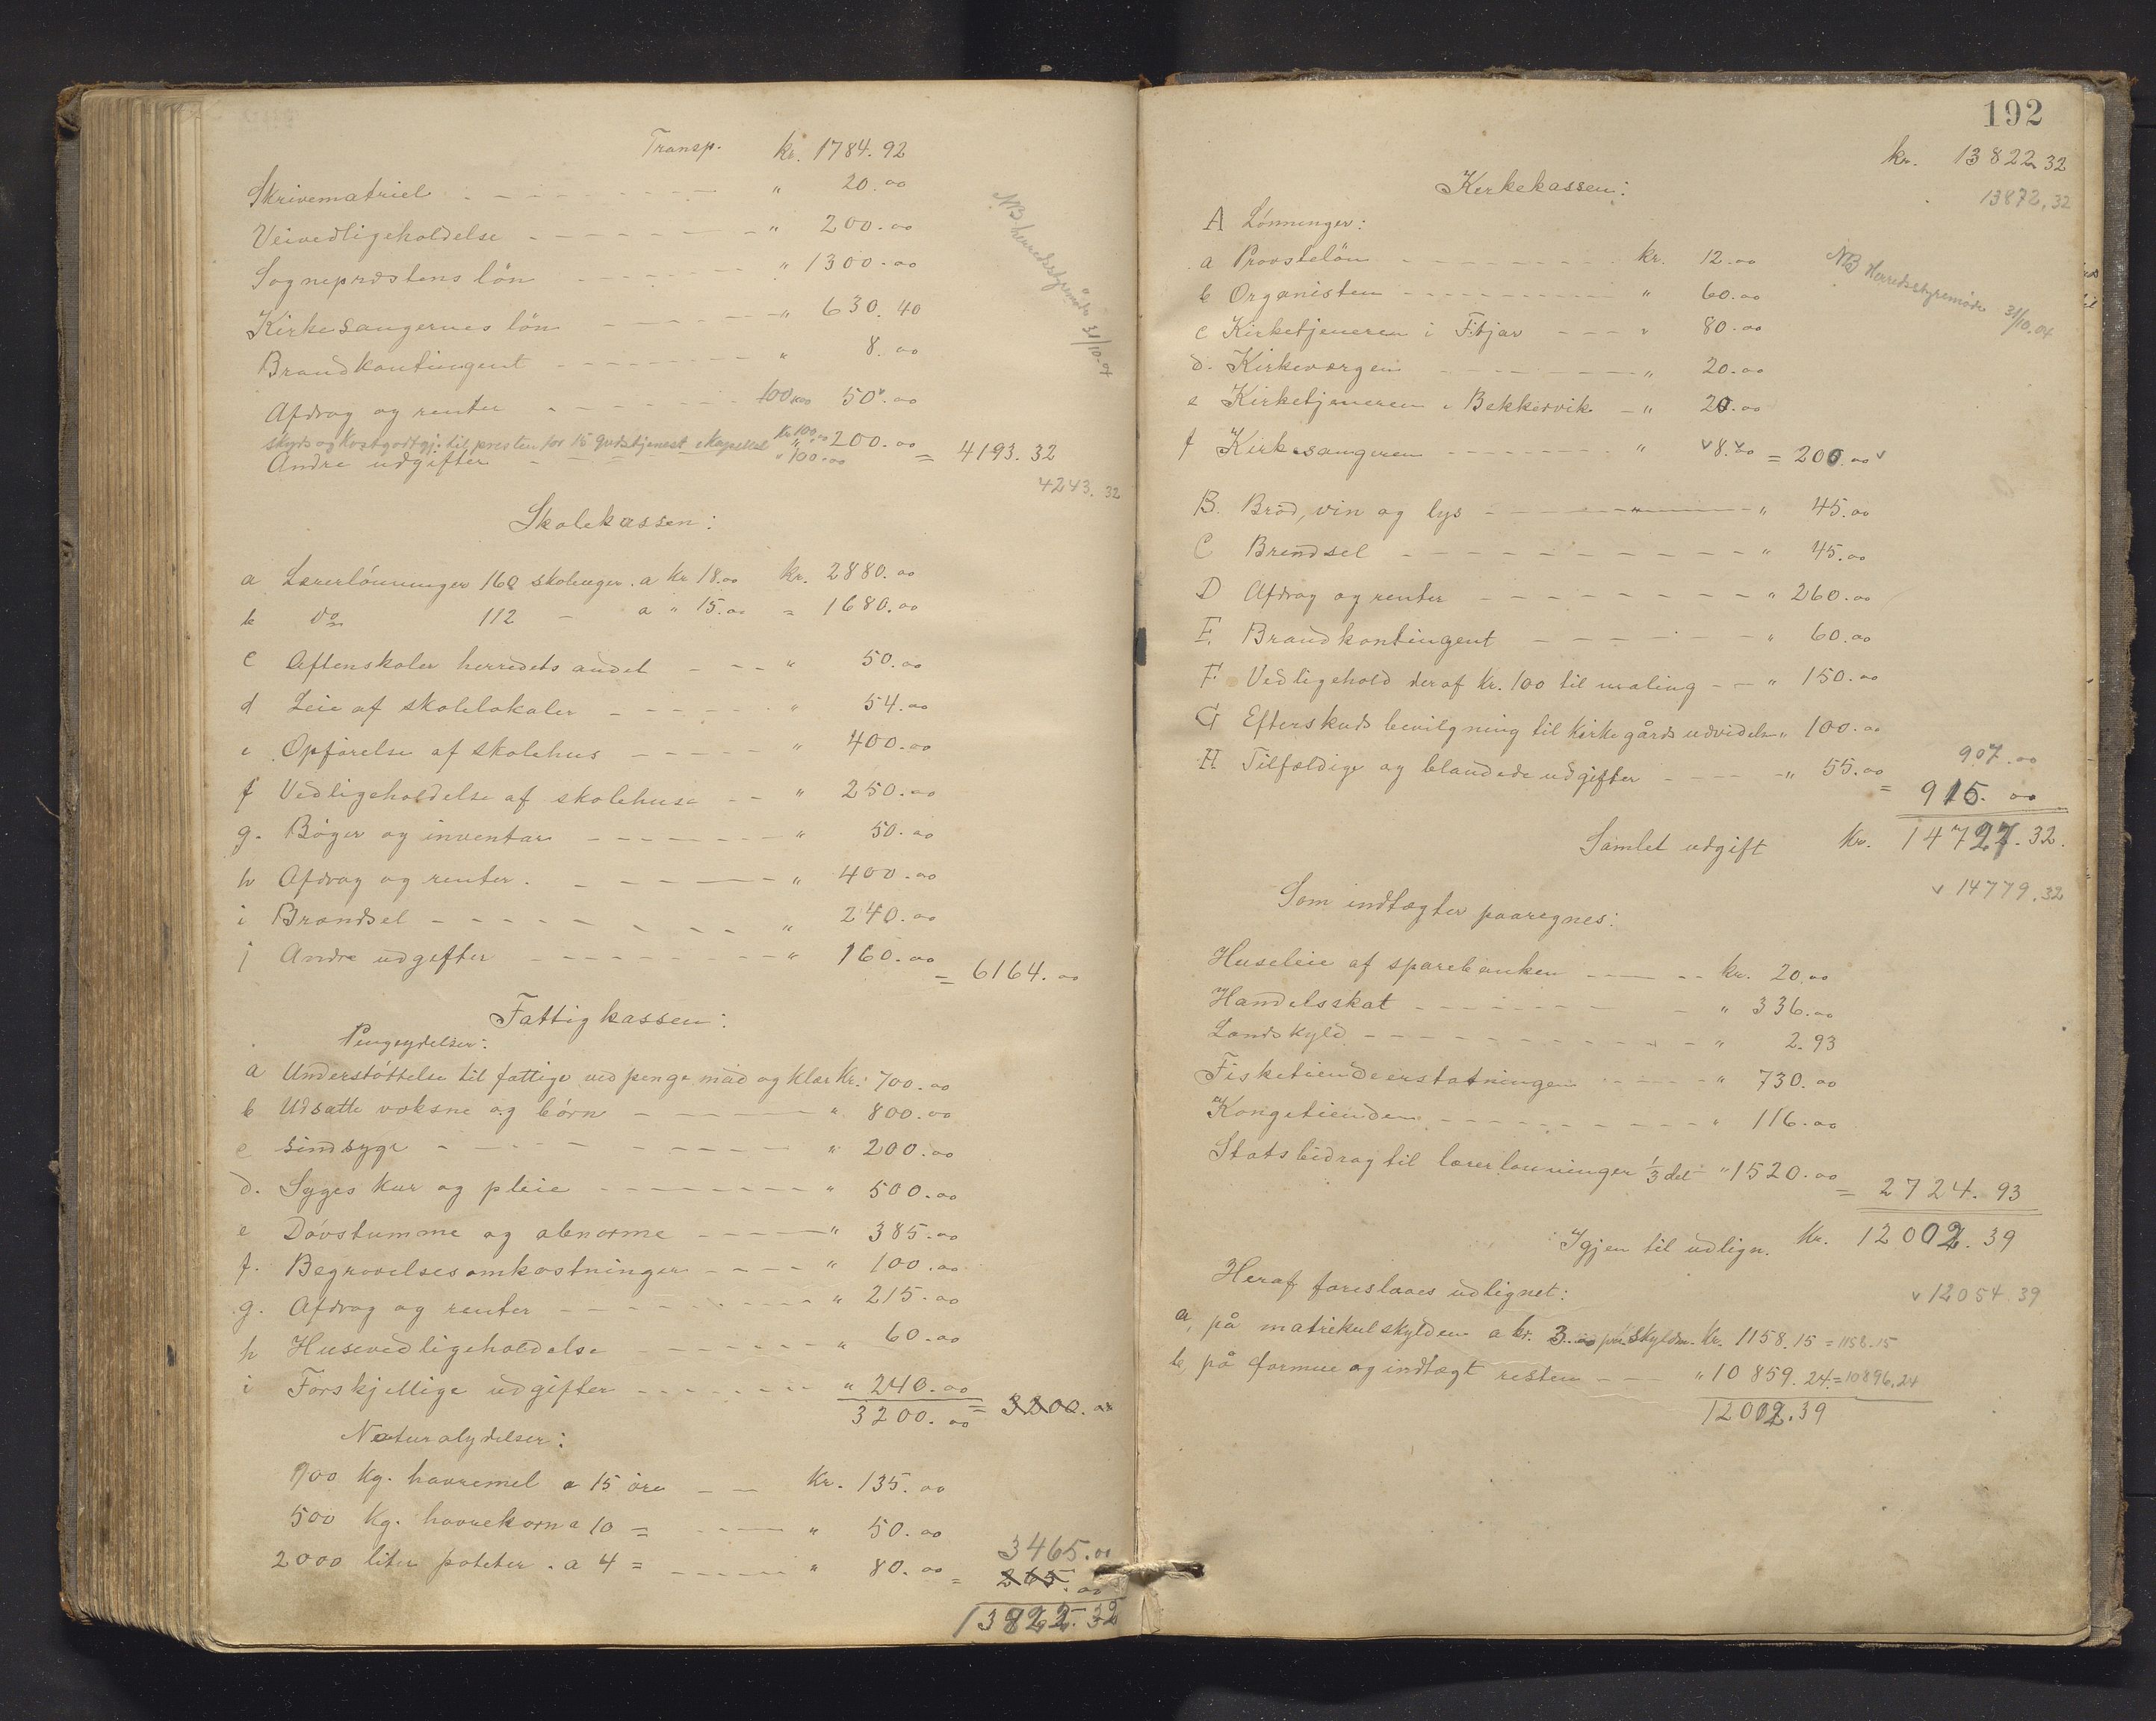 Transp. kr. 1784.92
Skrivematriel " 20.00
Veivedligeholdelse " 200.00
Sogneprestens lön " 1300.00
Kirkesangernes lön " 630.40
Brandkontingent " 8.00
Afdrag og renter 100.00 50.00
skyds og kostgodtgj. til presten for 15 gudstjenest. kr 100.00
Andre udgifter " 100.00 200.00 = 4193.32
4243.32
NB herredsstyremöde 31/10-04
Skolekassen:
a Lærerlönninger 160 skoleuger. a kr 18.00 kr. 2880.00
b do 112 - a " 15.00 = 1680.00
c Aftenskoler herredets andel " 50.00
d Leie af skolelokaler " 54.00
e Opförelse af skolehus " 400.00
f Vedligeholdelse af skolehuse " 250.00
g. Böger og inventar " 50.00
h Afdrag og renter. " 400.00
i Brændsel " 240.00
j Andre udgifter " 160.00 = 6164.00
Fattigkassen:
Pengeydelser:
a Understöttelse til fattige ved penge mad og klær kr. 700.00
b Udsatte voksne og börn " 800.00
c Sindsyge " 200.00
d. Syges kur og pleie " 500.00
e Dövstumme og abnorme " 385.00
f. Begravelsesomkostninger " 100.00
g. Afdrag og renter " 215.00
h Husevedligeholdelse " 60.00
i Forskjellige udgifter " 240.00
3200.00 = 3200.00
Naturalydelser:
900 kg. havremel a 15 öre kr. 135.00
500 kg. havrekorn a 10 = " 50.00
3465.00
2000 liter poteter. a 4 = " 80.00 = 265.00
13822.32
192
kr. 13822.32
13872.32
Kirkekassen:
A Lönninger:
a Provstelön kr. 12.00
b Organisten " 60.00
c Kirketjeneren i Fitjar " 80.00
d. Kirkeværgen " 20.00
e Kirketjeneren i Bekkervik " 20.00
f Kirkesangeren " 8.00 = 200.00
NB Herredsstyremöde 31/10.04
B. Bröd, vin og lys " 45.00
C Brendsel " 45.00
D Afdrag og renter " 260.00
E. Brandkontingent " 60.00
F. Vedligehold deraf kr. 100 til maling " 150.00
G Efterskuds bevilgning til kirkegårds udvidelse " 100.00
907.00
H. Tilfældige og blandede udgifter " 55.00 = 915.00
Samlet udgift kr. 14727.32.
14779.32
Som indtægter paaregnes:
Huseleie af sparebanken kr. 20.00
Handelsskat " 336.00
Landskyld " 2.93
Fisketiendeerstatningen " 730.00
Kongetienden " 116.00
Statsbidrag til lærerlönninger 1/3 del " 1520.00 = 2724.93
Igjen til udlign. kr. 12002.39
12054.39
Heraf foreslaaes udlignet:
a, på matrikulskylden a kr. 3.00 pr skyldm. kr. 1158.15 = 1158.15
b, på formue og indtægt resten " 10859.24 = 10896.24
12002.39